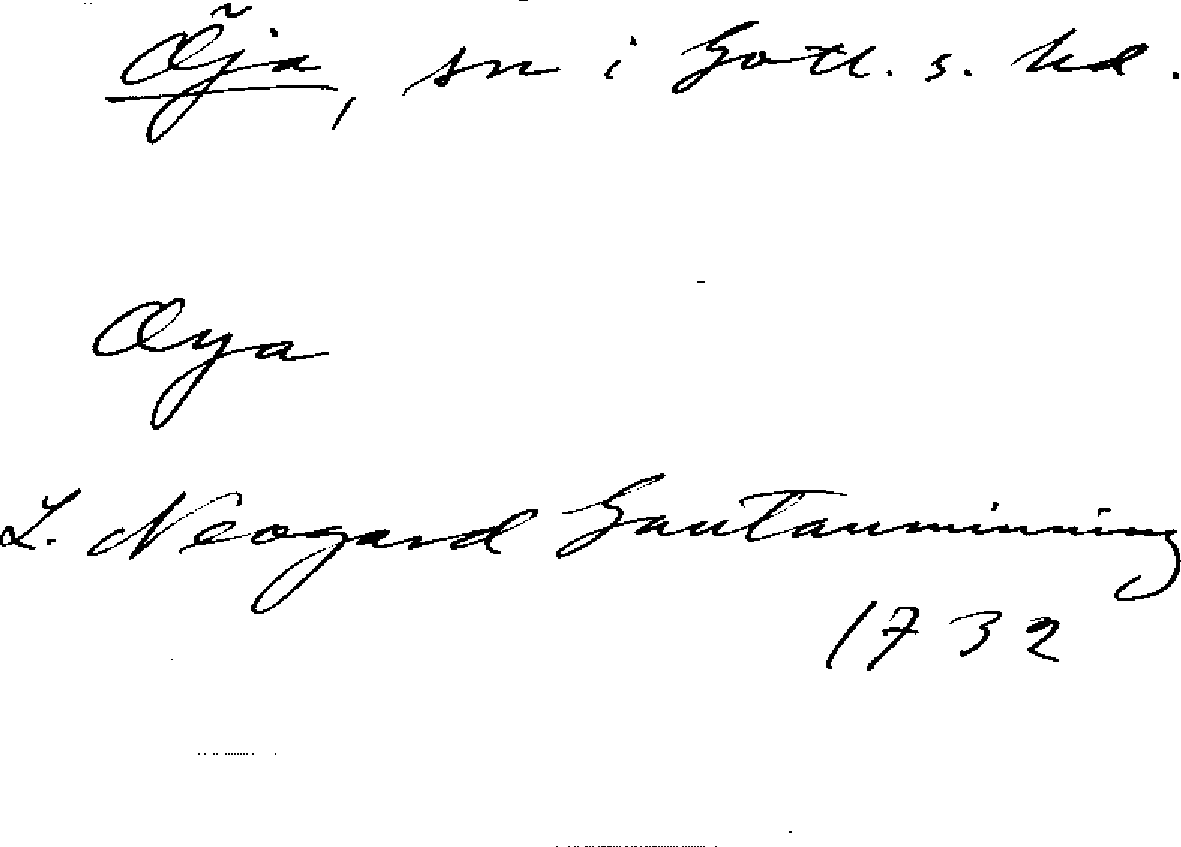 Öja, sn i Gotl. s. hd.
Øya
L. Neogard Gautauminning
1732